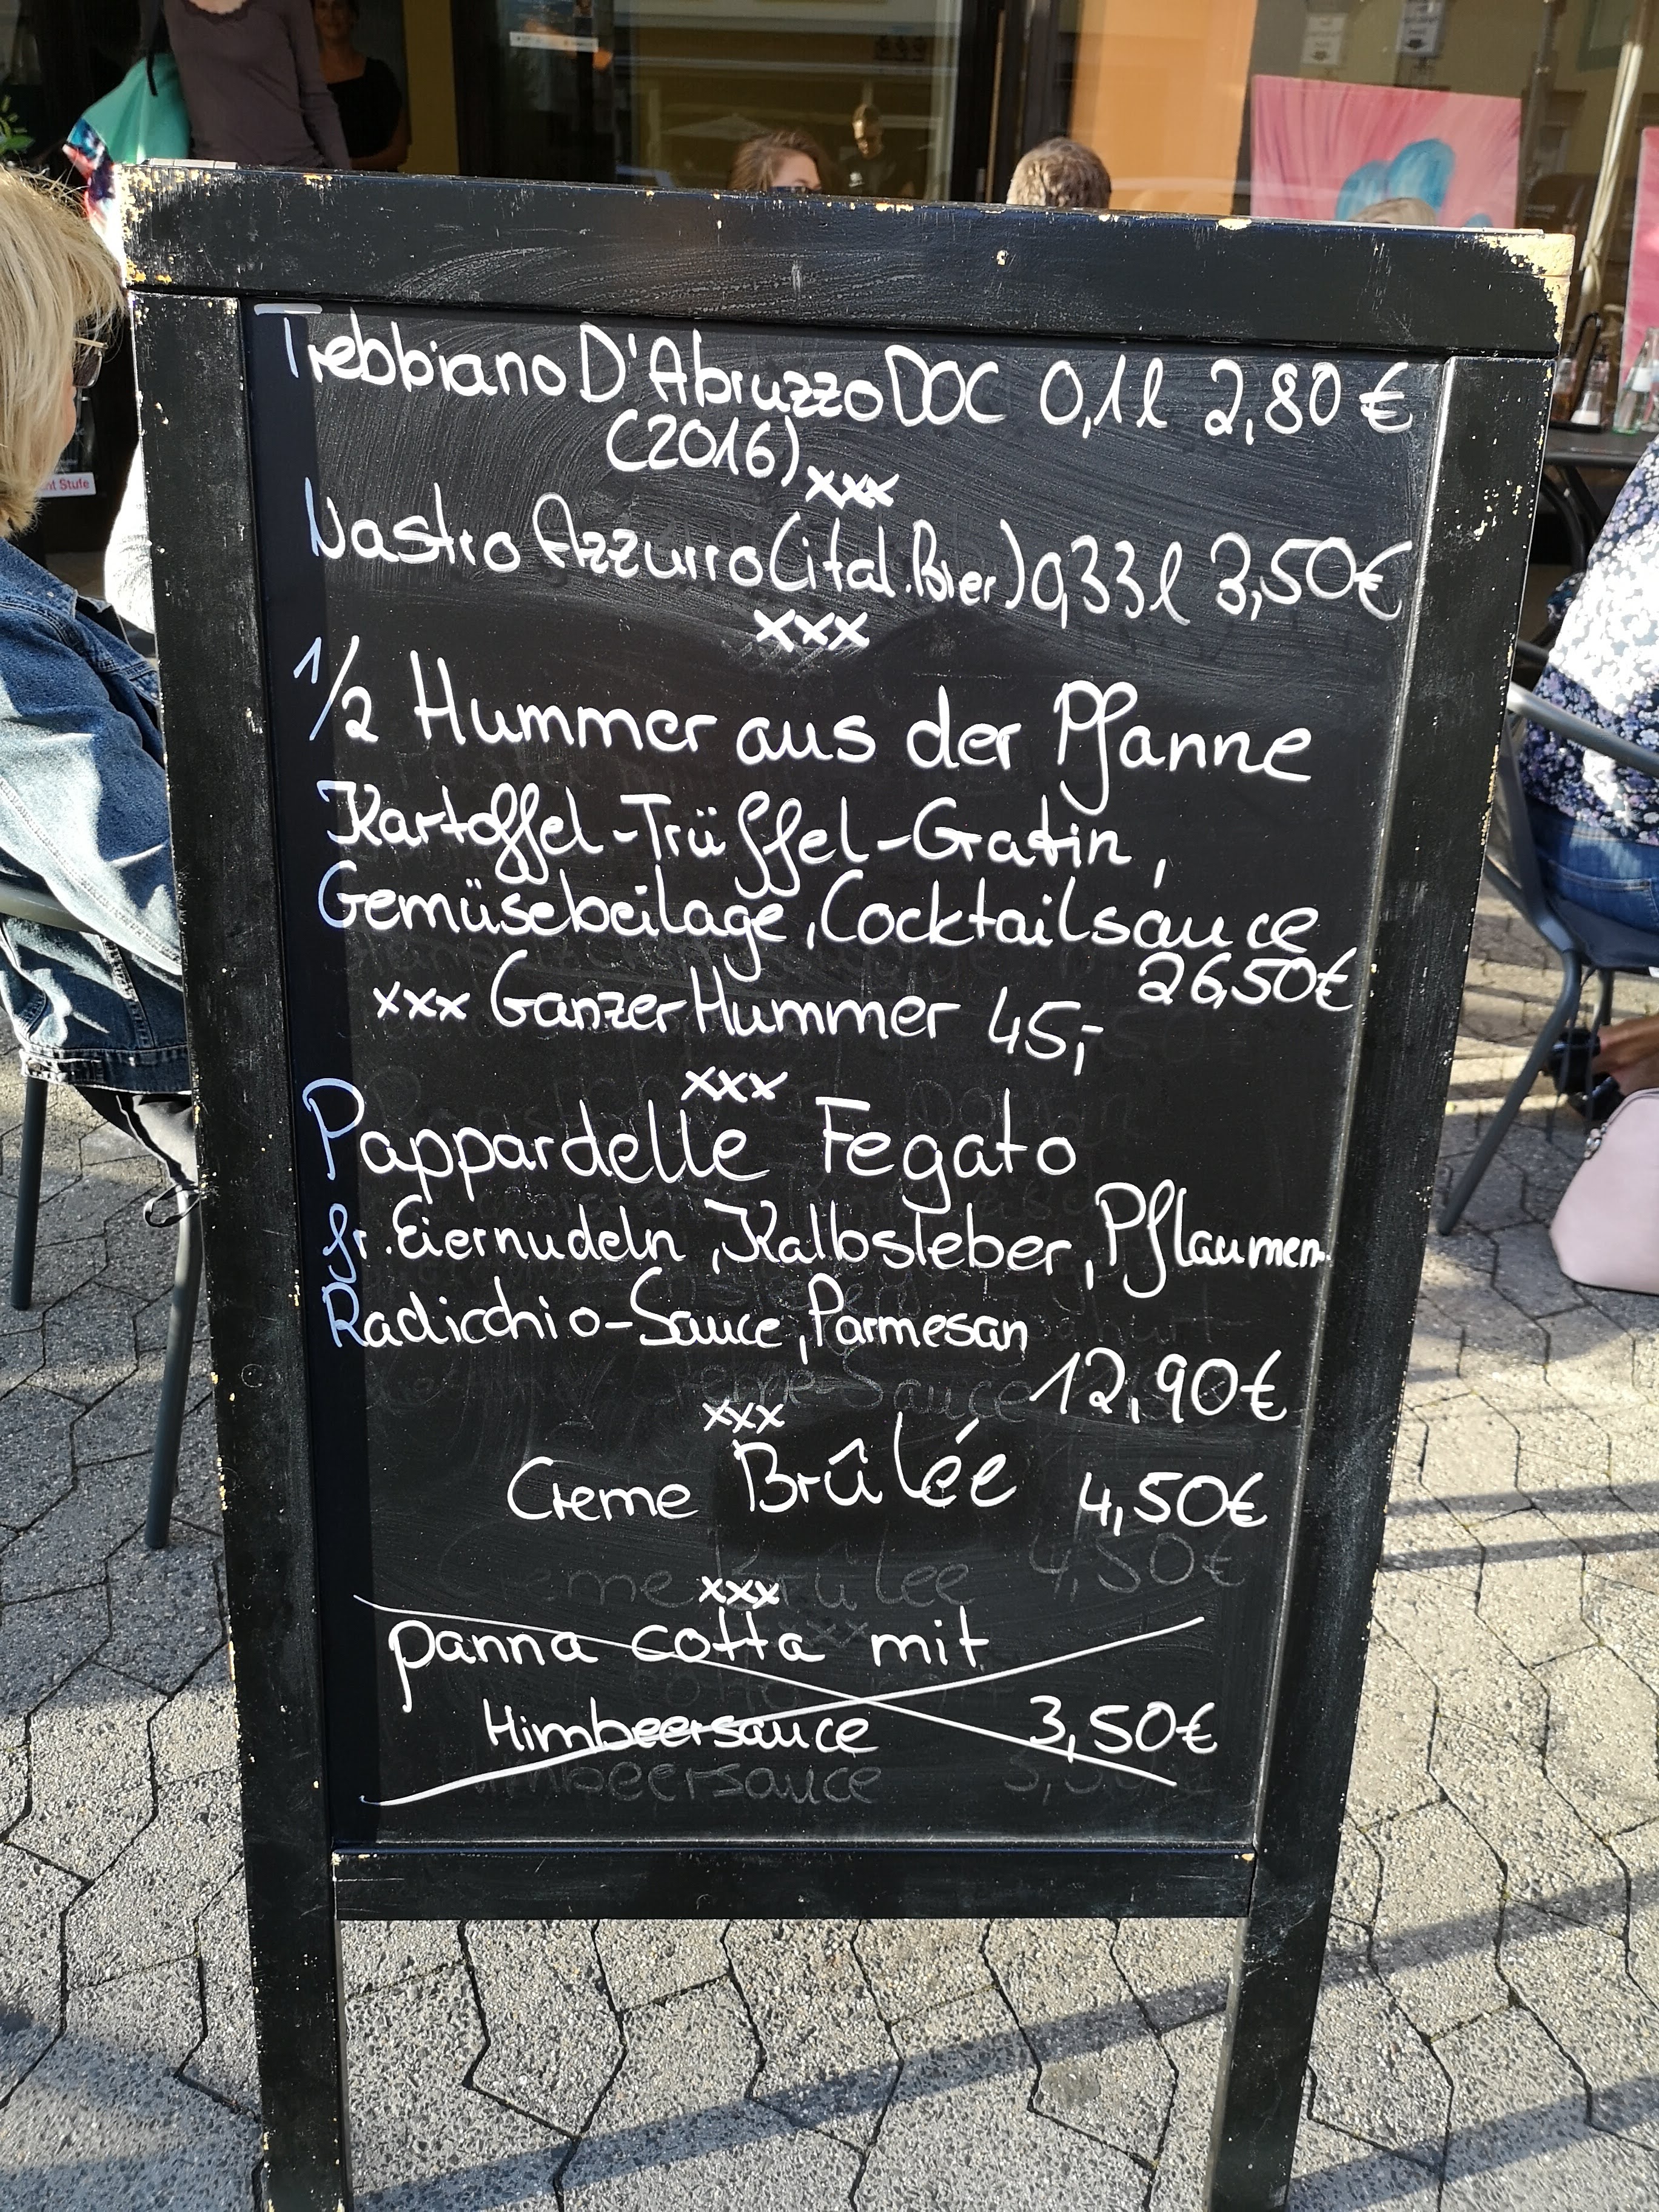 Trebbiano D'Abruzzo DOC 0,1l 2,80 €
(2016)
xxx
Nastro Azzurro (ital. Bier) 0,33l 3,50€
xxx
1/2 Hummer aus der Pfanne
Kartoffel-Trüffel-Gratin,
Gemüsebeilage, Cocktailsauce
26,50€
xxx Ganzer Hummer 45,-
xxx
Pappardelle Fegato
fr. Eiernudeln, Kalbsleber, Pflaumen
Radicchio-Sauce, Parmesan
12,90€
xxx
Creme Brûlée 4,50€
Creme Brûlee 4,50€
xxx
panna cotta mit
Himbeersauce 3,50€
nt Stufe